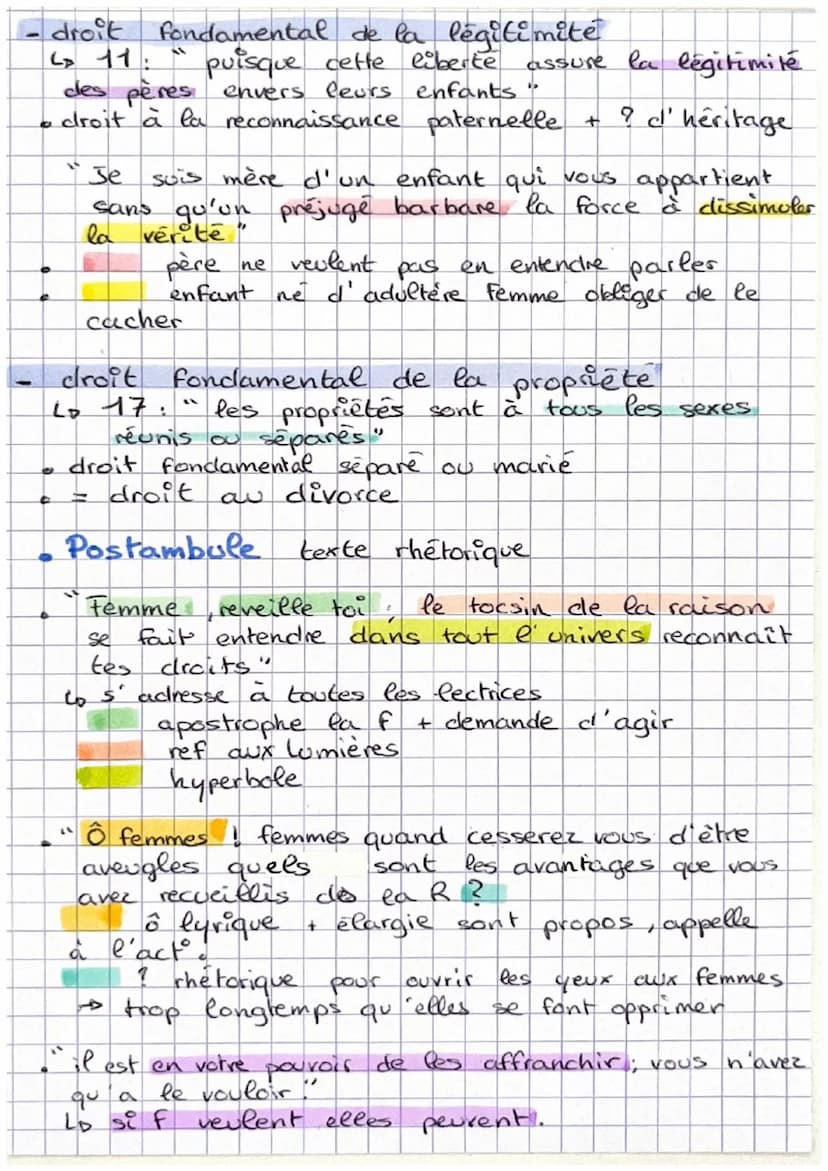 - droit fondamental de la légitimité
↳ 11 : " puisque cette liberté assure la légitimité
des pères envers leurs enfants "
• droit à la reconnaissance paternelle + ? d'héritage
" Je suis mère d'un enfant qui vous appartient
sans qu'un préjugé barbare la force à dissimuler
la vérité "
• père ne veulent pas en entendre parler
• enfant né d'adultère femme obliger de le
cacher
- droit fondamental de la propriété
↳ 17 : " les propriétés sont à tous les sexes
réunis ou séparés "
• droit fondamental séparé ou marié
• = droit au divorce
• Postambule texte rhétorique
• " Femme, reveille toi ; le tocsin de la raison
se fait entendre dans tout l'univers reconnaît
tes droits "
↳ s'adresse à toutes les lectrices
apostrophe la f + demande d'agir
ref aux lumières
hyperbole
• " Ô femmes ! femmes quand cesserez vous d'être
aveugles quels sont les avantages que vous
avez recueillis de la R ?
ô lyrique + élargie sont propos, appelle
à l'act°.
? rhétorique pour ouvrir les yeux aux femmes
→ trop longtemps qu'elles se font opprimer
• " il est en votre pouvoir de les affranchir ; vous n'avez
qu'a le vouloir. "
↳ si f veulent elles peuvent.